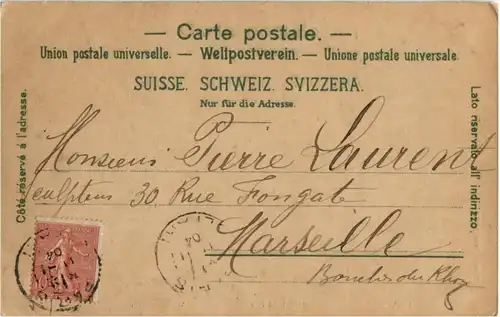 — Carte postale. —
Union postale universelle. — Weltpostverein. — Unione postale universale.
SUISSE. SCHWEIZ. SVIZZERA.
Nur für die Adresse.
Côté réservé à l'adresse.
Lato riservato all' indirizzo.
Monsieur Pierre Laurent
sculpteur 30 Rue Fongate
Marseille
Bouches du Rhone